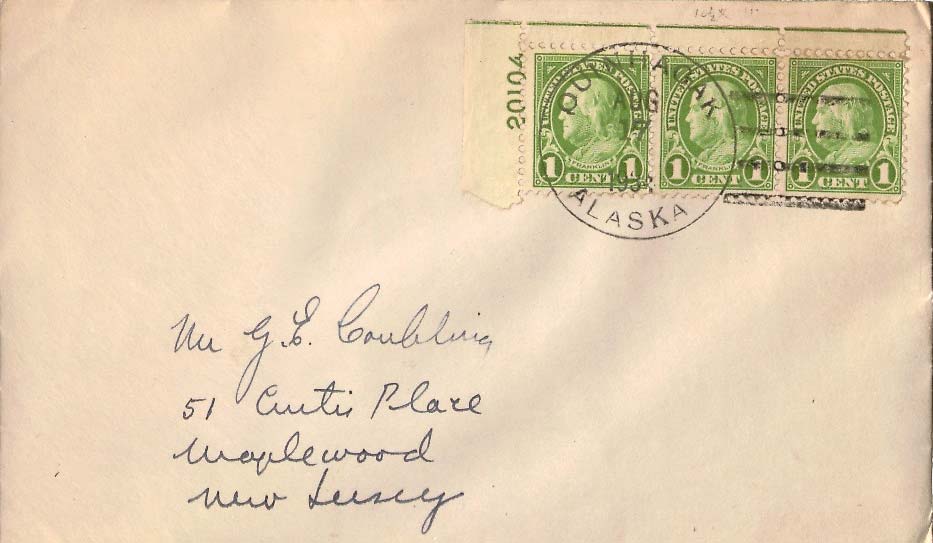 20104
UNITED STATES POSTAGE
FRANKLIN
1 CENT 1
UNITED STATES POSTAGE
FRANKLIN
1 CENT 1
UNITED STATES POSTAGE
1 CENT 1
QUINHAGAK
AUG
17
ALASKA
Mr G. E.
51 Curtis Place
Maplewood
New Jersey